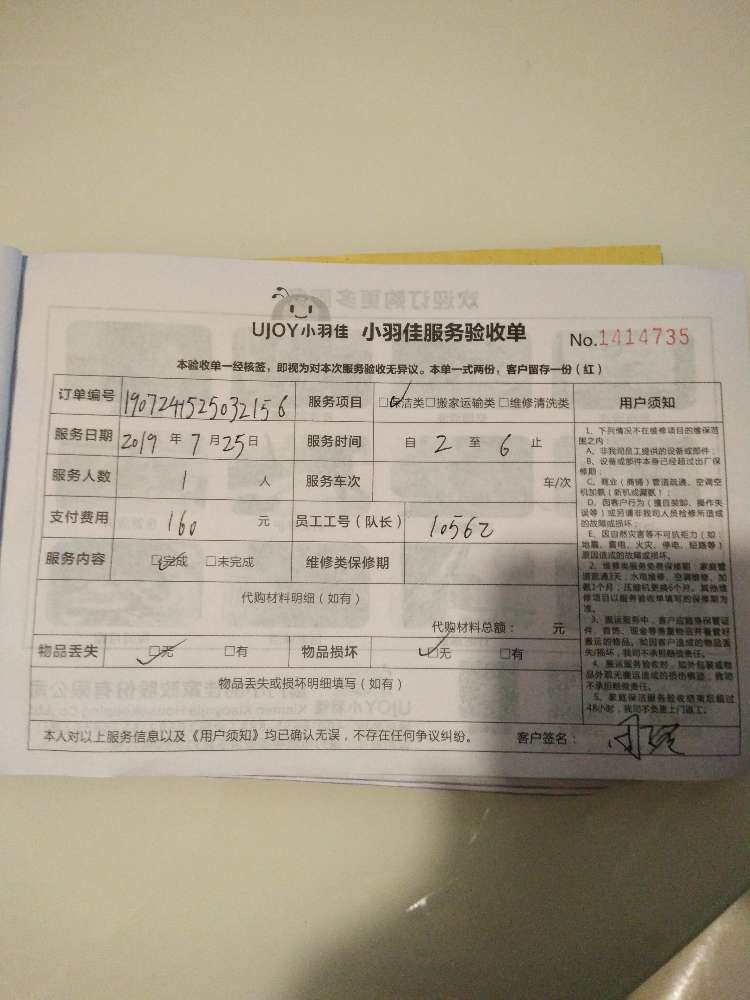 UJOY小羽佳 小羽佳服务验收单 No.1414735
本验收单一经核签，即视为对本次服务验收无异议。本单一式两份，客户留存一份（红）
订单编号 1907241525032156 服务项目 □保洁类□搬家运输类□维修清洗类 用户须知
服务日期 2019 年 7 月 25 日 服务时间 自 2 至 6 止
服务人数 1 人 服务车次 车/次
支付费用 160 元 员工工号（队长） 10562
服务内容 □完成 □未完成 维修类保修期
代购材料明细（如有）
代购材料总额： 元
物品丢失 □无 □有 物品损坏 □无 □有
物品丢失或损坏明细填写（如有）
本人对以上服务信息以及《用户须知》均已确认无误，不存在任何争议纠纷。 客户签名：
1、下列情况不在维修项目的维保范
围之内：
A、非我司员工提供的设备或部件；
B、设备或部件本身已经超过出厂保
修期；
C、商业（商铺）管道疏通、空调空
机加氨（新机或漏氨）；
D、因客户行为（擅自装卸、操作失
误等）或另请非我司人员检修所造成
的故障或损坏；
E、因自然灾害等不可抗拒力（如：
地震、雷电、火灾、停电、短路等）
原因造成的故障或损坏。
2、维修类服务免费保修期：家庭管
道疏通3天，水电维修、空调维修、加
氨1个月，压缩机更换6个月。其他维
修项目以服务验收单填写的保修期为
准。
3、搬运服务中，客户应随身保管证
件、首饰、现金等贵重物品并看管好
搬运的物品。如因客户造成的物品丢
失/损坏，我司不承担赔偿责任。
4、搬运服务验收时，如外包装或物
品外观无搬运造成的损伤痕迹，我司
不承担赔偿责任。
5、家庭保洁服务验收结束后超过
48小时，我司不负责上门返工。